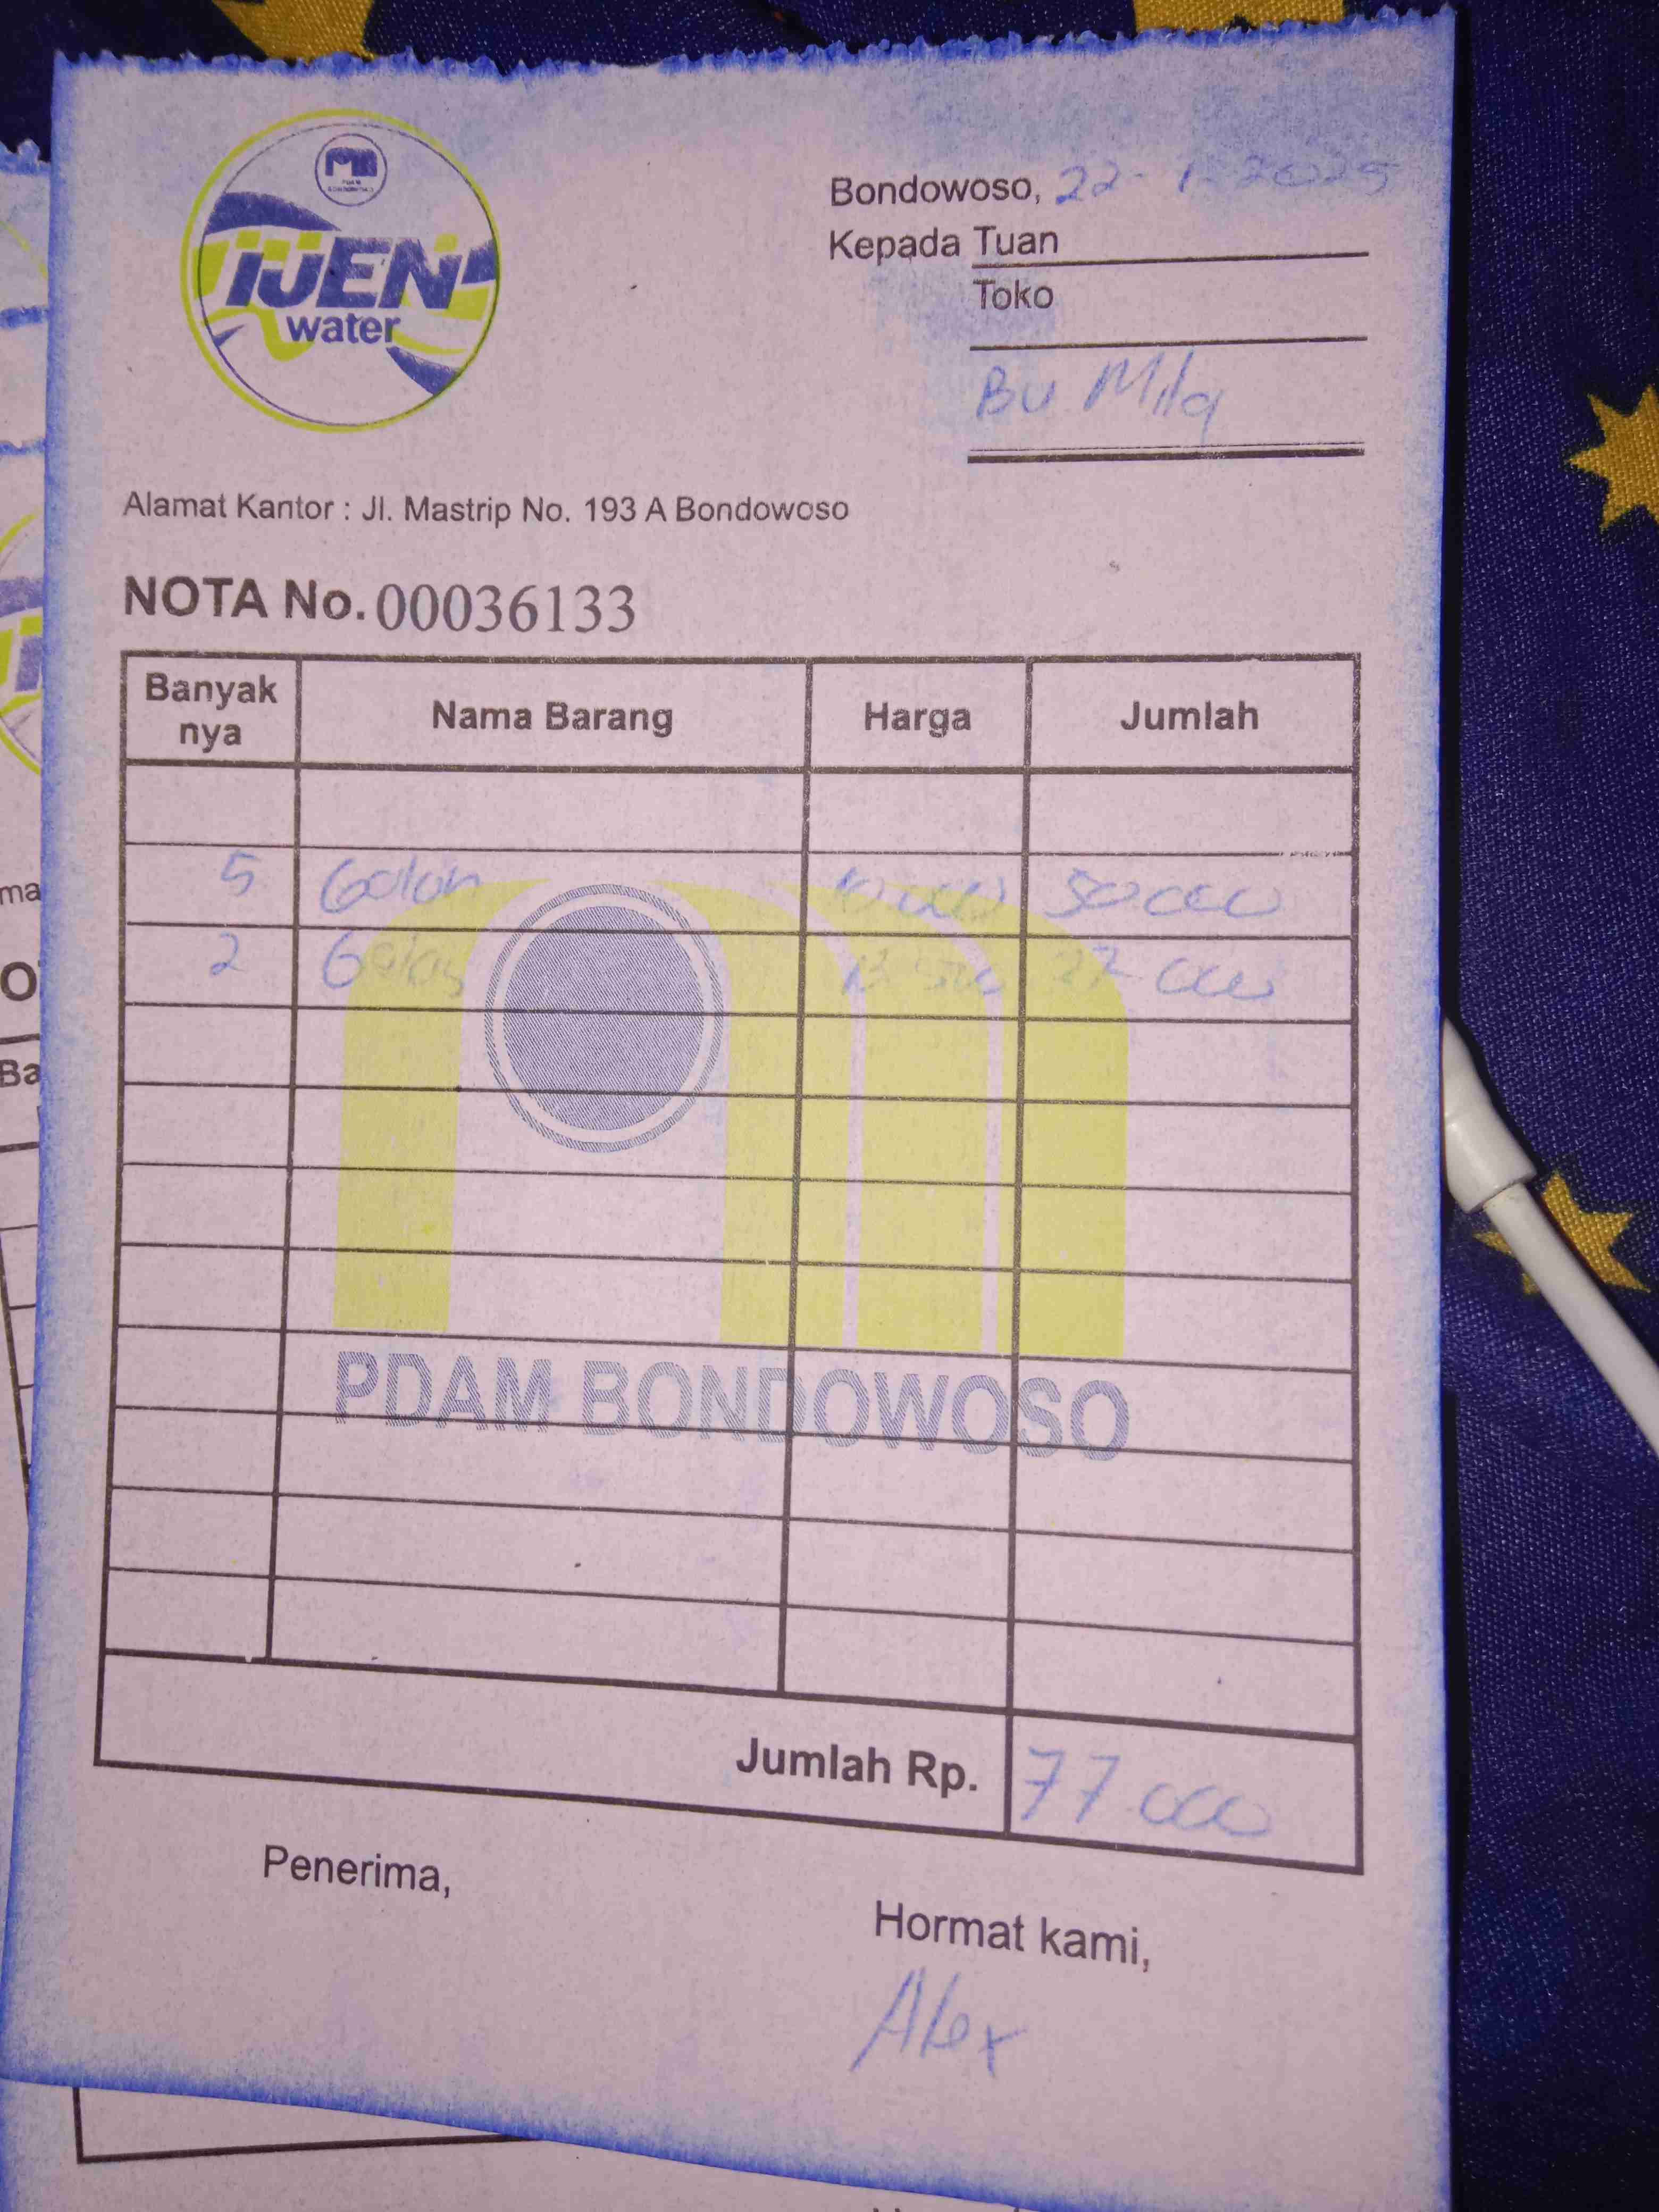 IJEN
water
Bondowoso, 22-1-2025
Kepada Tuan
Toko
Bu Mila
Alamat Kantor : Jl. Mastrip No. 193 A Bondowoso
NOTA No. 00036133
Banyak nya Nama Barang Harga Jumlah
5 Galon 10.000 50.000
2 Gelas 13.500 27.000
PDAM BONDOWOSO
Jumlah Rp. 77.000
Penerima,
Hormat kami,
Alex